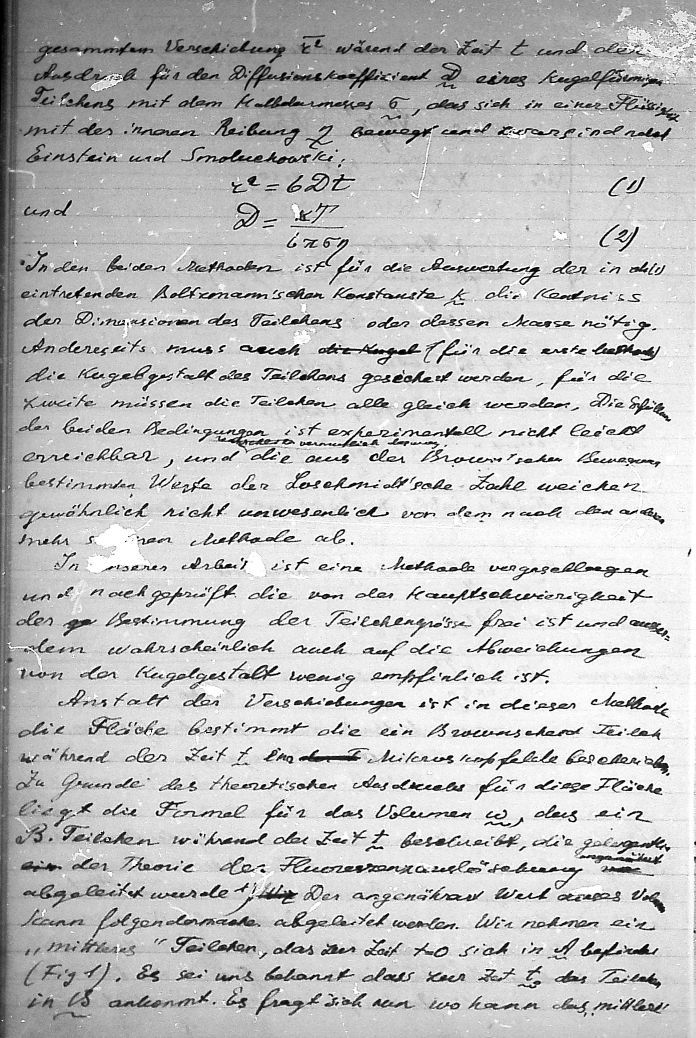 gesammten Verschiebung r̅² wärend der Zeit t und den
Ausdruck für den Diffusionskoefficient D eines kugelförmigen
Teilchens mit dem Halbdurmesses σ, das sich in einer Flüssigkeit
mit des inneren Reibung η bewegt und zwar sind nach
Einstein und Smoluchowski:
r² = 6Dt (1)
und
D = kT / 6πση (2)
In den beiden Methoden ist für die Auswertung der in
eintretenden Boltzmann'schen Konstante k die Kentniss
der Dimensionen des Teilchens oder dessen Masse nötig.
Andereseits muss auch die Kugel (für die erste Methode)
die Kugelgestalt des Teilchens gesichert werden, für die
zweite müssen die Teilchen alle gleich werden. Die Erfüllung
der beiden Bedingungen ist experimentell nicht leicht
erreichbar, und die aus der Brown'schen Bewegung
bestimmten Werte der Loschmidt'sche Zahl weichen
gewöhnlich nicht unwesenlich von dem nach den anderen
mehr Methode ab.
In unserer Arbeit ist eine Methode vorgeschlagen
und nachgeprüft die von der Hauptschwierigkeit
der Bestimmung der Teilchengrösse frei ist und ausser-
dem wahrscheinlich auch auf die Abweichungen
von der Kugelgestalt wenig empfinlich ist.
Anstatt der Verschiebungen ist in dieser Methode
die Fläche bestimmt die ein Brownschend Teilch
während der Zeit t im Mikroskopfelde beschreibt.
Zu Grunde des theoretischen Ausdrucks für diese Fläche
liegt die Formel für das Volumen w, das ein
B. Teilchen während der Zeit t beschreibt, die gelegentlich
der Theorie der Fluoreszenzauslöschung angenähert
abgeleitet wurde ¹) Der angenährt Wert dieses Vol
kann folgendermachen abgeleitet werden. Wir nehmen ein
„mittleres" Teilchen, das zur Zeit t=0 sich in A befindet
(Fig 1). Es sei uns bekannt dass zur Zeit t das Teilchen
in B ankommt. Es fragt sich nun wo kann das „mittlere"